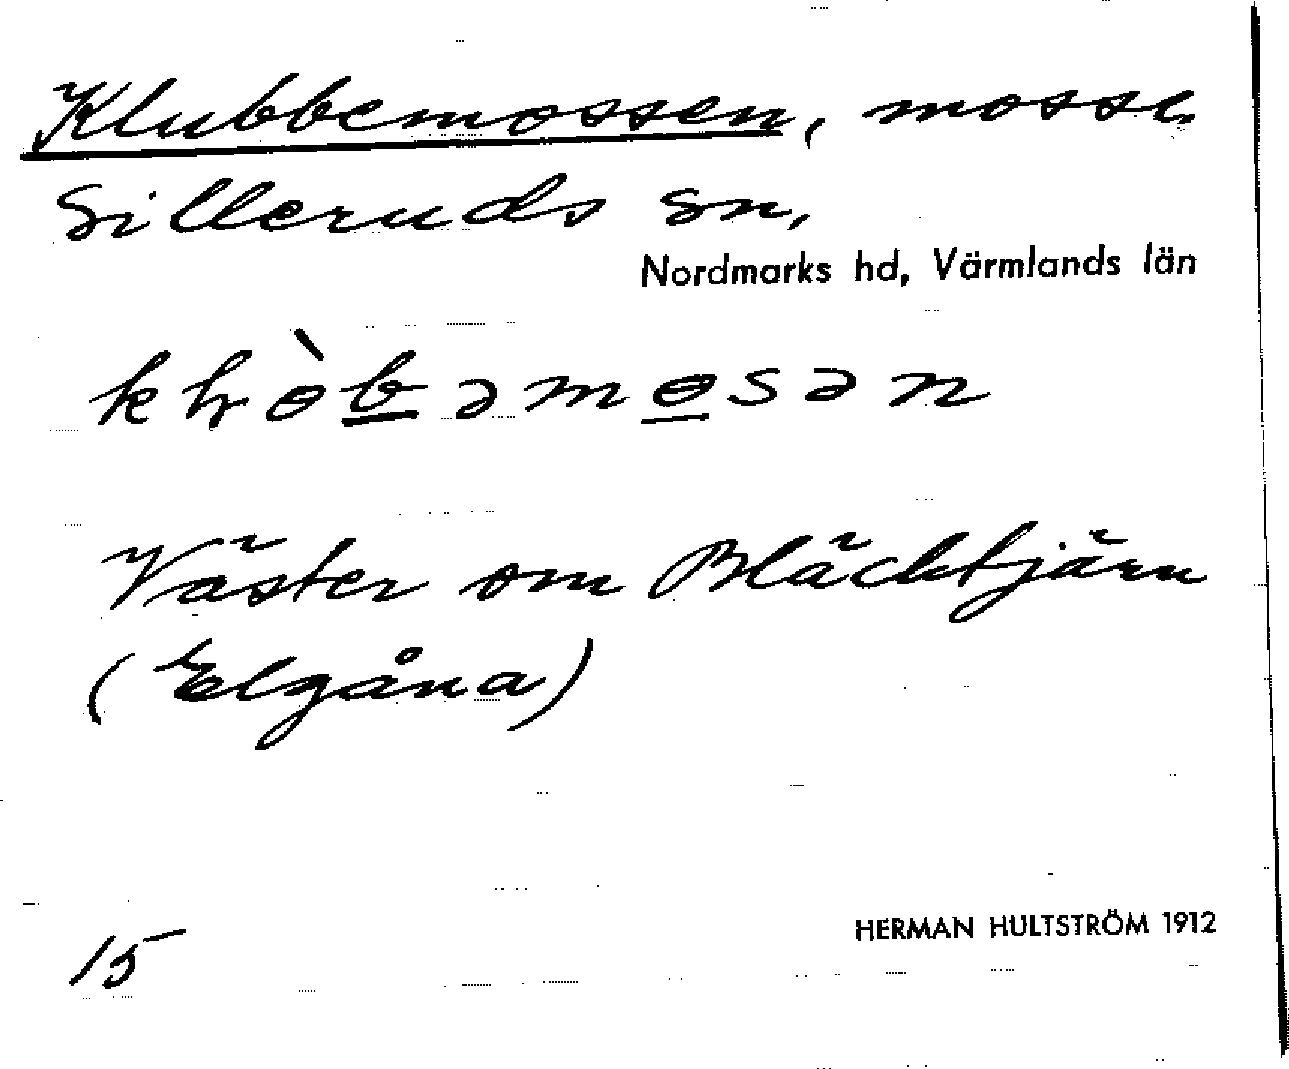 Klubbemossen, mosse
Silleruds sn,
Nordmarks hd, Värmlands län
Väster om Bläcktjärn
(Elgåna)
15
HERMAN HULTSTRÖM 1912